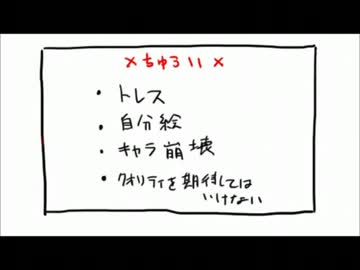 ×ちゅうい×
・トレス
・自分絵
・キャラ崩壊
・クオリティを期待しては
いけない